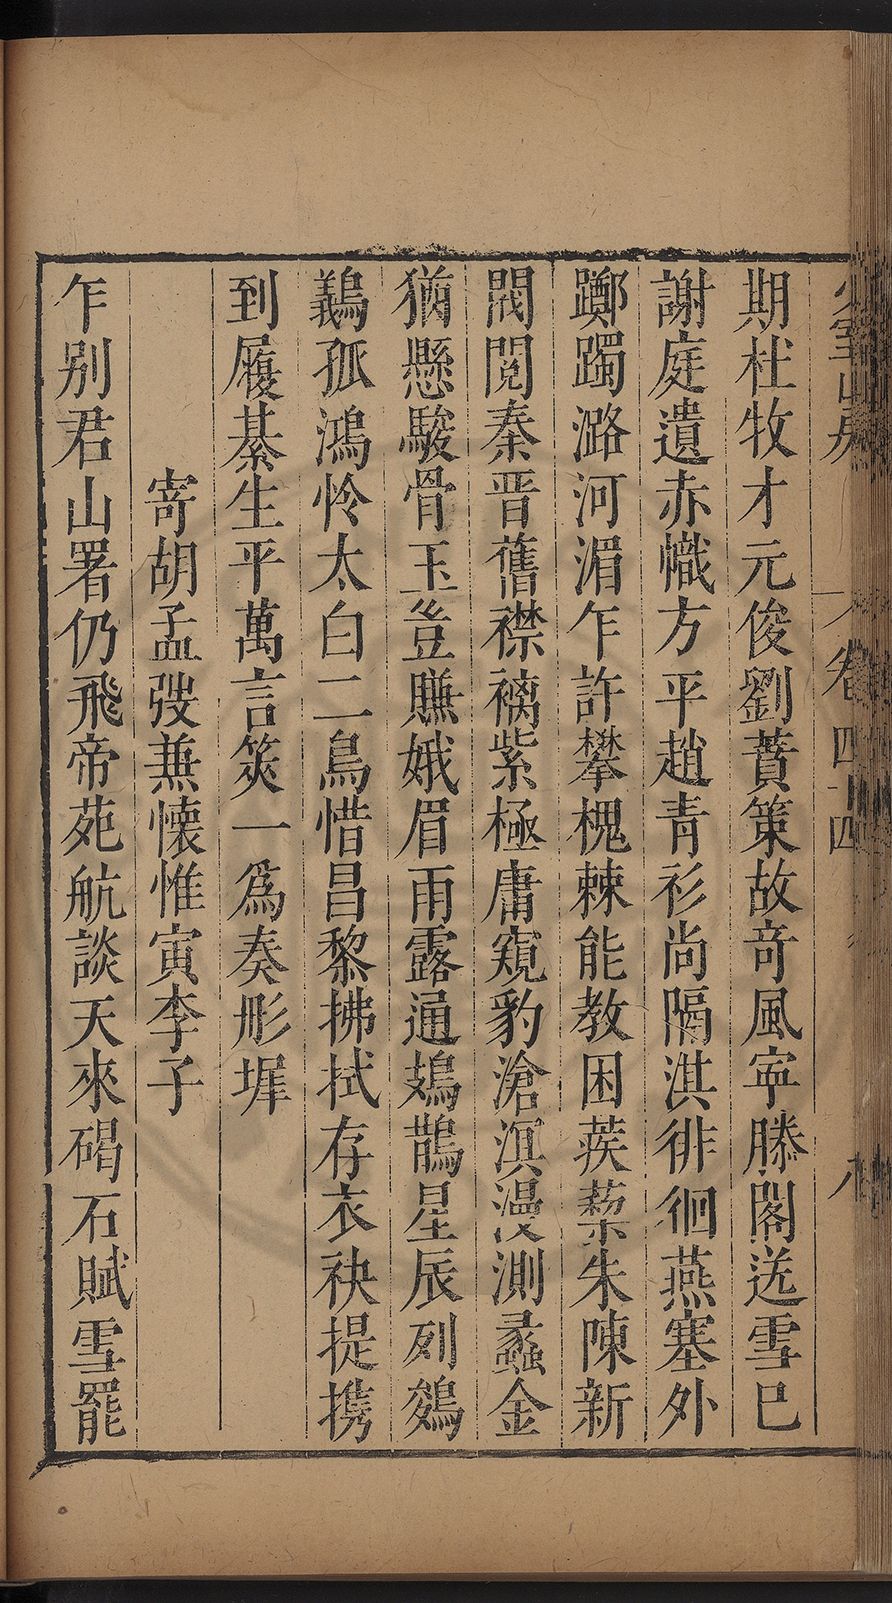 少室山房 卷四十四 八
期杜牧才元俊劉蕡策故奇風寧滕閣送雪巳
謝庭遺赤幟方平趙青衫尚隔淇徘徊燕塞外
躑躅潞河湄乍許攀槐棘能教困蒺藜朱陳新
閥閱秦晋舊襟褵紫極庸窺豹滄溟漫測蠡金
猶懸駿骨玉豈賺娥眉雨露通鳷鵲星辰列鵕
鸃孤鴻怜太白二鳥惜昌黎拂拭存衣袂提携
到履綦生平萬言筴一爲奏彤墀
寄胡孟弢兼懐惟寅李子
乍别君山署仍飛帝苑航談天來碣石賦雪罷